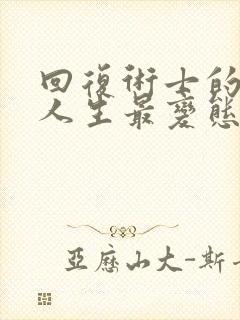 回復術士的
人生最變態
亞歷山大-斯